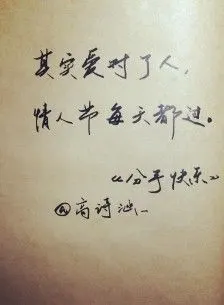 其实爱对了人，
情人节每天都过。
《分手快乐》
@高诗